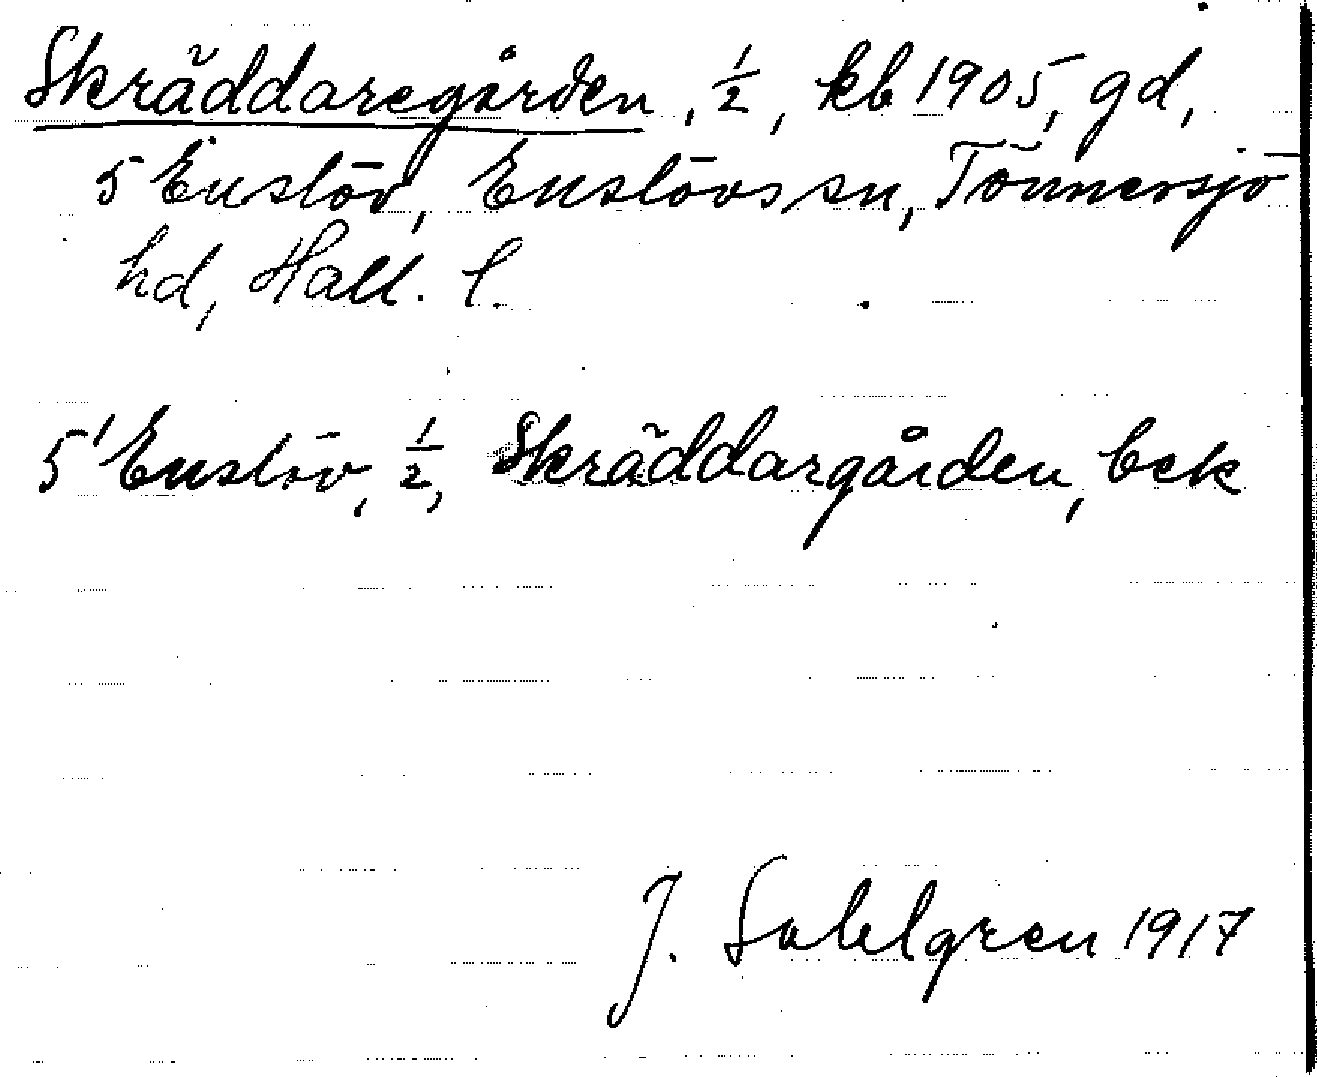 Skräddaregården, 1/2, kb 1905, gd,
5 Enslöv, Enslövs sn, Tönnersjö
hd, Hall. l.
5' Enslöv, 1/2, Skräddargården, bek
J. Sahlgren 1917